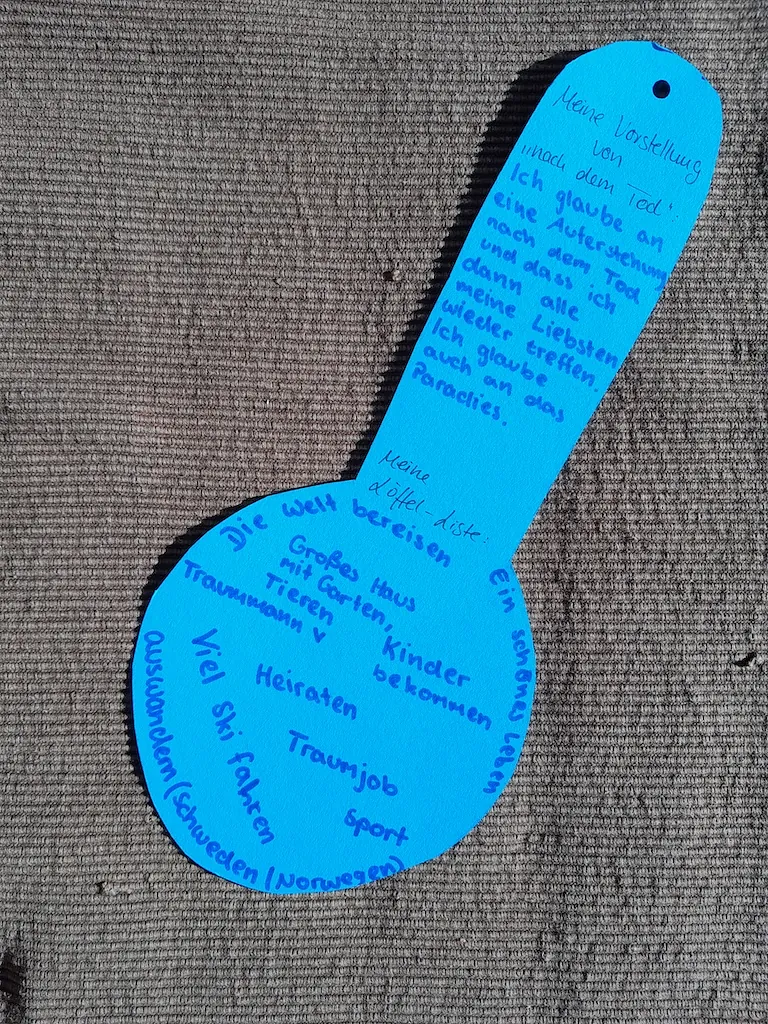 Meine Vorstellung
von
„nach dem Tod":
Ich glaube an
eine Auferstehung
nach dem Tod
und dass ich
dann alle
meine Liebsten
wieder treffen.
Ich glaube
auch an das
Paradies.
Meine
Löffel-Liste:
Die Welt bereisen
Großes Haus
mit Garten,
Tieren
Traummann v
Ein schönes Leben
Kinder
bekommen
Heiraten
Viel Ski fahren
Traumjob
Sport
auswandern (Schweden/Norwegen)